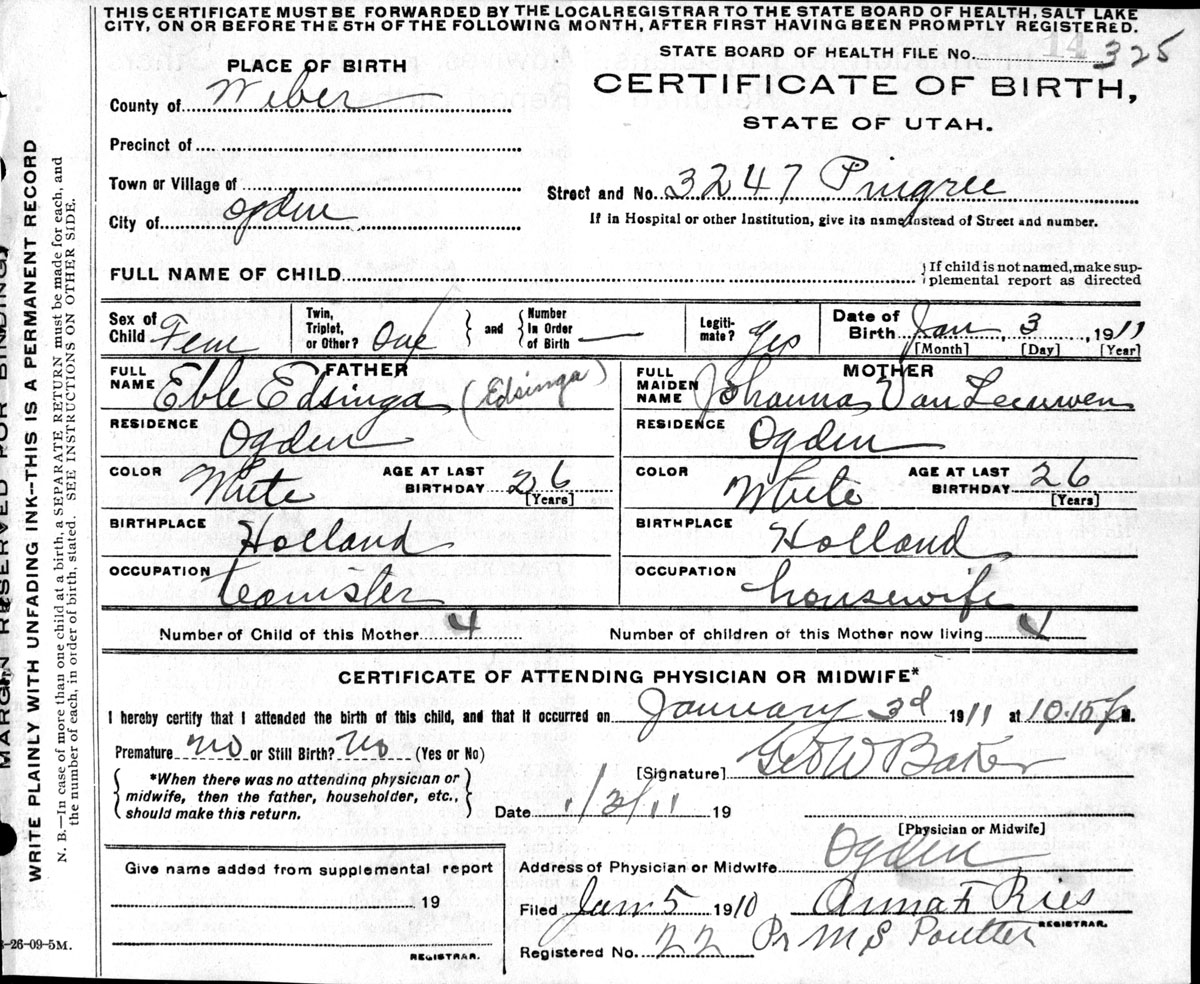 THIS CERTIFICATE MUST BE FORWARDED BY THE LOCALREGISTRAR TO THE STATE BOARD OF HEALTH, SALT LAKE
CITY, ON OR BEFORE THE 5TH OF THE FOLLOWING MONTH, AFTER FIRST HAVING BEEN PROMPTLY REGISTERED.
STATE BOARD OF HEALTH FILE No. 14 325
PLACE OF BIRTH
CERTIFICATE OF BIRTH,
STATE OF UTAH.
County of Weber
Precinct of
Town or Village of
City of Ogden
Street and No. 3247 Pingree
If in Hospital or other Institution, give its name instead of Street and number.
FULL NAME OF CHILD
If child is not named, make sup-
plemental report as directed
Sex of Child Fem
Twin, Triplet, or Other? One
and Number In Order of Birth —
Legiti-mate? Yes
Date of Birth Jan, 3, 1911
[Month] [Day] [Year]
FATHER
FULL NAME Eble Edsinga (Edsinga)
MOTHER
FULL MAIDEN NAME Johanna Van Leeuwen
RESIDENCE Ogden
RESIDENCE Ogden
COLOR White AGE AT LAST BIRTHDAY 26 [Years]
COLOR White AGE AT LAST BIRTHDAY 26 [Years]
BIRTHPLACE Holland
BIRTHPLACE Holland
OCCUPATION teamster
OCCUPATION housewife
Number of Child of this Mother 4
Number of children of this Mother now living 4
CERTIFICATE OF ATTENDING PHYSICIAN OR MIDWIFE*
I hereby certify that I attended the birth of this child, and that it occurred on January 3d 1911 at 10.15 P M.
Premature no or Still Birth? No (Yes or No)
[Signature] Geo W Baker
*When there was no attending physician or
midwife, then the father, householder, etc.,
should make this return.
Date 1/3/11 19
[Physician or Midwife]
Address of Physician or Midwife Ogden
Give name added from supplemental report
19
REGISTRAR.
Filed Jan 5 1910 Anna F Ries
REGISTRAR.
Registered No. 22 Pr M S Poutter
MARGIN RESERVED FOR BINDING
WRITE PLAINLY WITH UNFADING INK--THIS IS A PERMANENT RECORD
N. B.—In case of more than one child at a birth, a SEPARATE RETURN must be made for each, and
the number of each, in order of birth, stated. SEE INSTRUCTIONS ON OTHER SIDE.
-26-09-5M.